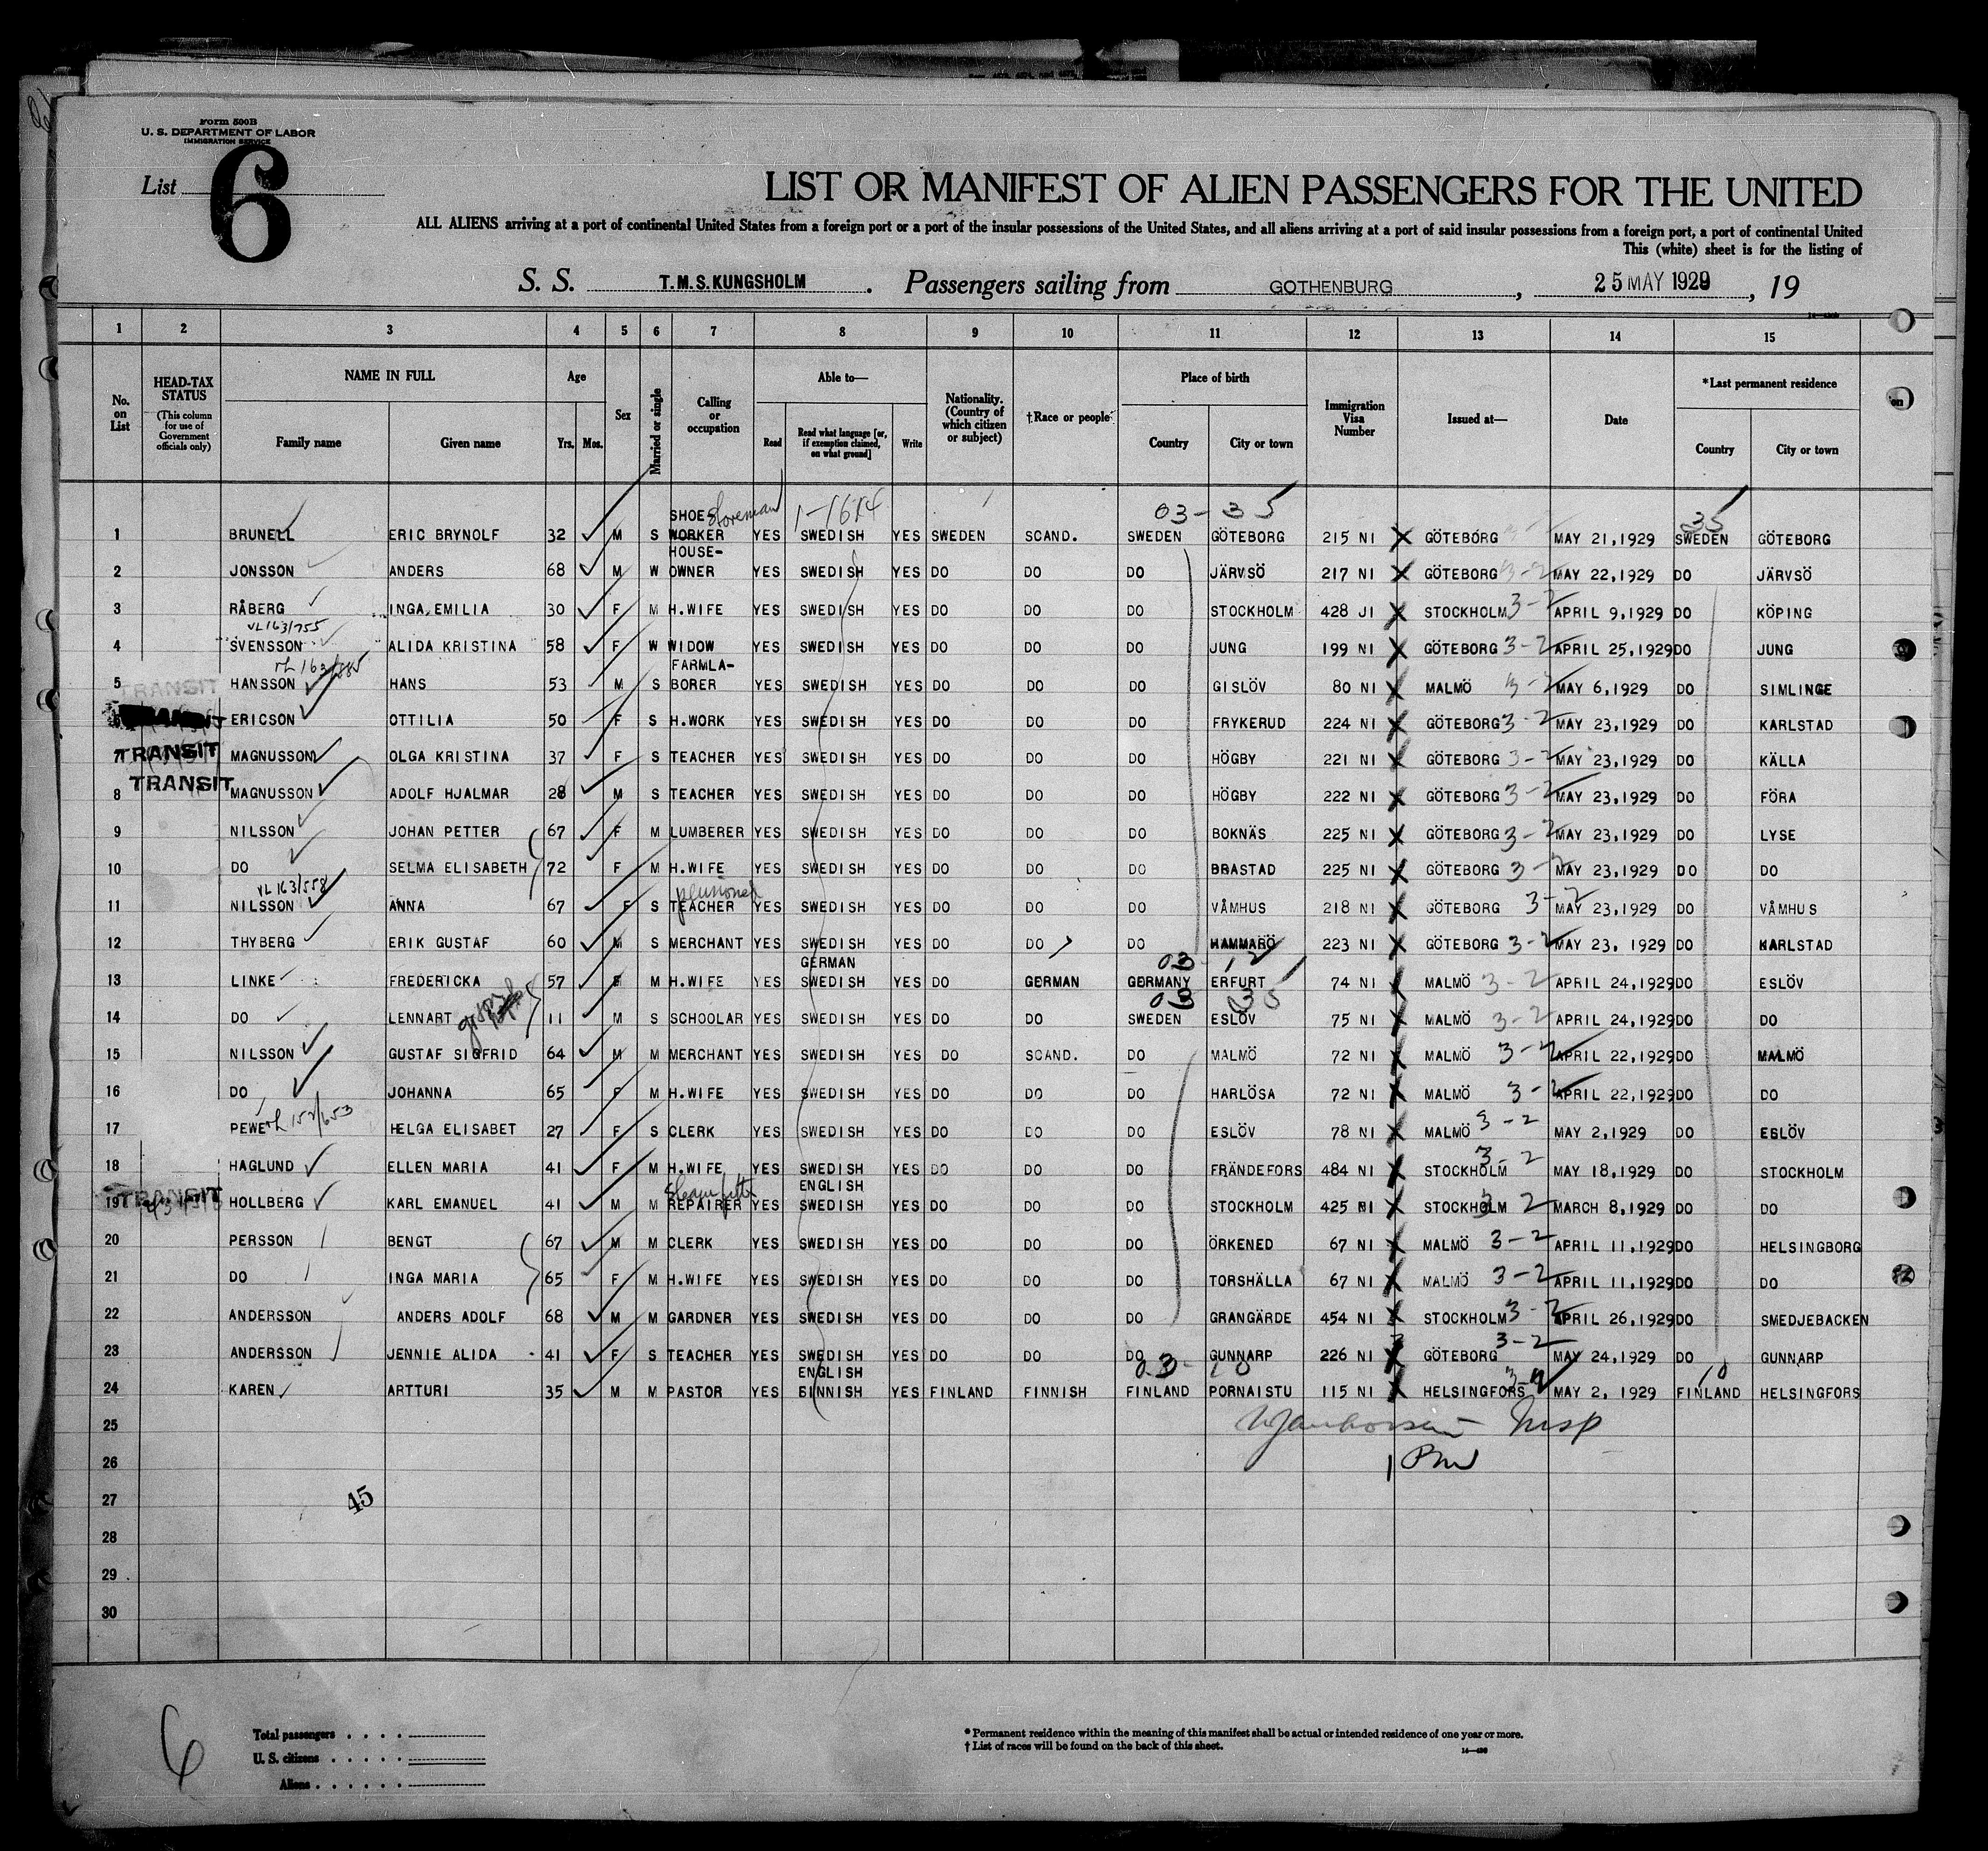 Form 500B
U. S. DEPARTMENT OF LABOR
IMMIGRATION SERVICE
List 6
LIST OR MANIFEST OF ALIEN PASSENGERS FOR THE UNITED
ALL ALIENS arriving at a port of continental United States from a foreign port or a port of the insular possessions of the United States, and all aliens arriving at a port of said insular possessions from a foreign port, a port of continental United
This (white) sheet is for the listing of
S. S. T.M.S.KUNGSHOLM . Passengers sailing from GOTHENBURG , 25 MAY 1929 , 19
1 2 3 4 5 6 7 8 9 10 11 12 13 14 15
No. on List
HEAD-TAX STATUS (This column for use of Government officials only)
NAME IN FULL
Family name Given name
Age
Yrs. Mos.
Sex
Married or single
Calling or occupation
Able to—
Read Read what language [or, if exemption claimed, on what ground] Write
Nationality. (Country of which citizen or subject)
†Race or people
Place of birth
Country City or town
Immigration Visa Number
Issued at—
Date
*Last permanent residence
Country City or town
SHOE- Storeman 1-1614 03-35 35
1 BRUNELL ERIC BRYNOLF 32 M S WORKER YES SWEDISH YES SWEDEN SCAND. SWEDEN GÖTEBORG 215 NI GÖTEBORG 3-2 MAY 21,1929 SWEDEN GÖTEBORG
HOUSE-
2 JONSSON ANDERS 68 M W OWNER YES SWEDISH YES DO DO DO JÄRVSÖ 217 NI GÖTEBORG 3-2 MAY 22,1929 DO JÄRVSÖ
3 RÅBERG INGA EMILIA 30 F M H.WIFE YES SWEDISH YES DO DO DO STOCKHOLM 428 JI STOCKHOLM 3-2 APRIL 9,1929 DO KÖPING
VL 163/755
4 SVENSSON ALIDA KRISTINA 58 F W WIDOW YES SWEDISH YES DO DO DO JUNG 199 NI GÖTEBORG 3-2 APRIL 25,1929 DO JUNG
FARMLA-
5 TRANSIT HANSSON HANS 53 M S BORER YES SWEDISH YES DO DO DO GISLÖV 80 NI MALMÖ 3-2 MAY 6,1929 DO SIMLINGE
6 ERICSON OTTILIA 50 F S H.WORK YES SWEDISH YES DO DO DO FRYKERUD 224 NI GÖTEBORG 3-2 MAY 23,1929 DO KARLSTAD
7 TRANSIT MAGNUSSON OLGA KRISTINA 37 F S TEACHER YES SWEDISH YES DO DO DO HÖGBY 221 NI GÖTEBORG 3-2 MAY 23,1929 DO KÄLLA
8 TRANSIT MAGNUSSON ADOLF HJALMAR 28 M S TEACHER YES SWEDISH YES DO DO DO HÖGBY 222 NI GÖTEBORG 3-2 MAY 23,1929 DO FÖRA
9 NILSSON JOHAN PETTER 67 F M LUMBERER YES SWEDISH YES DO DO DO BOKNÄS 225 NI GÖTEBORG 3-2 MAY 23,1929 DO LYSE
10 DO SELMA ELISABETH 72 F M H.WIFE YES SWEDISH YES DO DO DO BRASTAD 225 NI GÖTEBORG 3-2 MAY 23,1929 DO DO
VL 163/558 pensioned
11 NILSSON ANNA 67 F S TEACHER YES SWEDISH YES DO DO DO VÅMHUS 218 NI GÖTEBORG 3-2 MAY 23,1929 DO VÅMHUS
12 THYBERG ERIK GUSTAF 60 M S MERCHANT YES SWEDISH YES DO DO DO HAMMARÖ 223 NI GÖTEBORG 3-2 MAY 23, 1929 DO KARLSTAD
GERMAN 03-12
13 LINKE FREDERICKA 57 F M H.WIFE YES SWEDISH YES DO GERMAN GERMANY ERFURT 74 NI MALMÖ 3-2 APRIL 24,1929 DO ESLÖV
03 35
14 DO LENNART 11 M S SCHOOLAR YES SWEDISH YES DO DO SWEDEN ESLÖV 75 NI MALMÖ 3-2 APRIL 24,1929 DO DO
15 NILSSON GUSTAF SIGFRID 64 M M MERCHANT YES SWEDISH YES DO SCAND. DO MALMÖ 72 NI MALMÖ 3-2 APRIL 22,1929 DO MALMÖ
16 DO JOHANNA 65 F M H.WIFE YES SWEDISH YES DO DO DO HARLÖSA 72 NI MALMÖ 3-2 APRIL 22,1929 DO DO
17 PEWE HELGA ELISABET 27 F S CLERK YES SWEDISH YES DO DO DO ESLÖV 78 NI MALMÖ 3-2 MAY 2,1929 DO ESLÖV
18 HAGLUND ELLEN MARIA 41 F M H.WIFE YES SWEDISH YES DO DO DO FRÄNDEFORS 484 NI STOCKHOLM 3-2 MAY 18,1929 DO STOCKHOLM
Steam fitter ENGLISH
19 TRANSIT HOLLBERG KARL EMANUEL 41 M M REPAIRER YES SWEDISH YES DO DO DO STOCKHOLM 425 NI STOCKHOLM 3 2 MARCH 8,1929 DO DO
20 PERSSON BENGT 67 M M CLERK YES SWEDISH YES DO DO DO ÖRKENED 67 NI MALMÖ 3-2 APRIL 11,1929 DO HELSINGBORG
21 DO INGA MARIA 65 F M H.WIFE YES SWEDISH YES DO DO DO TORSHÄLLA 67 NI MALMÖ 3-2 APRIL 11,1929 DO DO
22 ANDERSSON ANDERS ADOLF 68 M M GARDNER YES SWEDISH YES DO DO DO GRANGÄRDE 454 NI STOCKHOLM 3-2 APRIL 26,1929 DO SMEDJEBACKEN
23 ANDERSSON JENNIE ALIDA 41 F S TEACHER YES SWEDISH YES DO DO DO GUNNARP 226 NI GÖTEBORG 3-2 MAY 24,1929 DO GUNNARP
ENGLISH 03-10 10
24 KAREN ARTTURI 35 M M PASTOR YES FINNISH YES FINLAND FINNISH FINLAND PORNAISTU 115 NI HELSINGFORS MAY 2, 1929 FINLAND HELSINGFORS
25 Insp
26
27
45
28
29
30
6
Total passengers
U. S. citizens
Aliens
* Permanent residence within the meaning of this manifest shall be actual or intended residence of one year or more.
† List of races will be found on the back of this sheet.